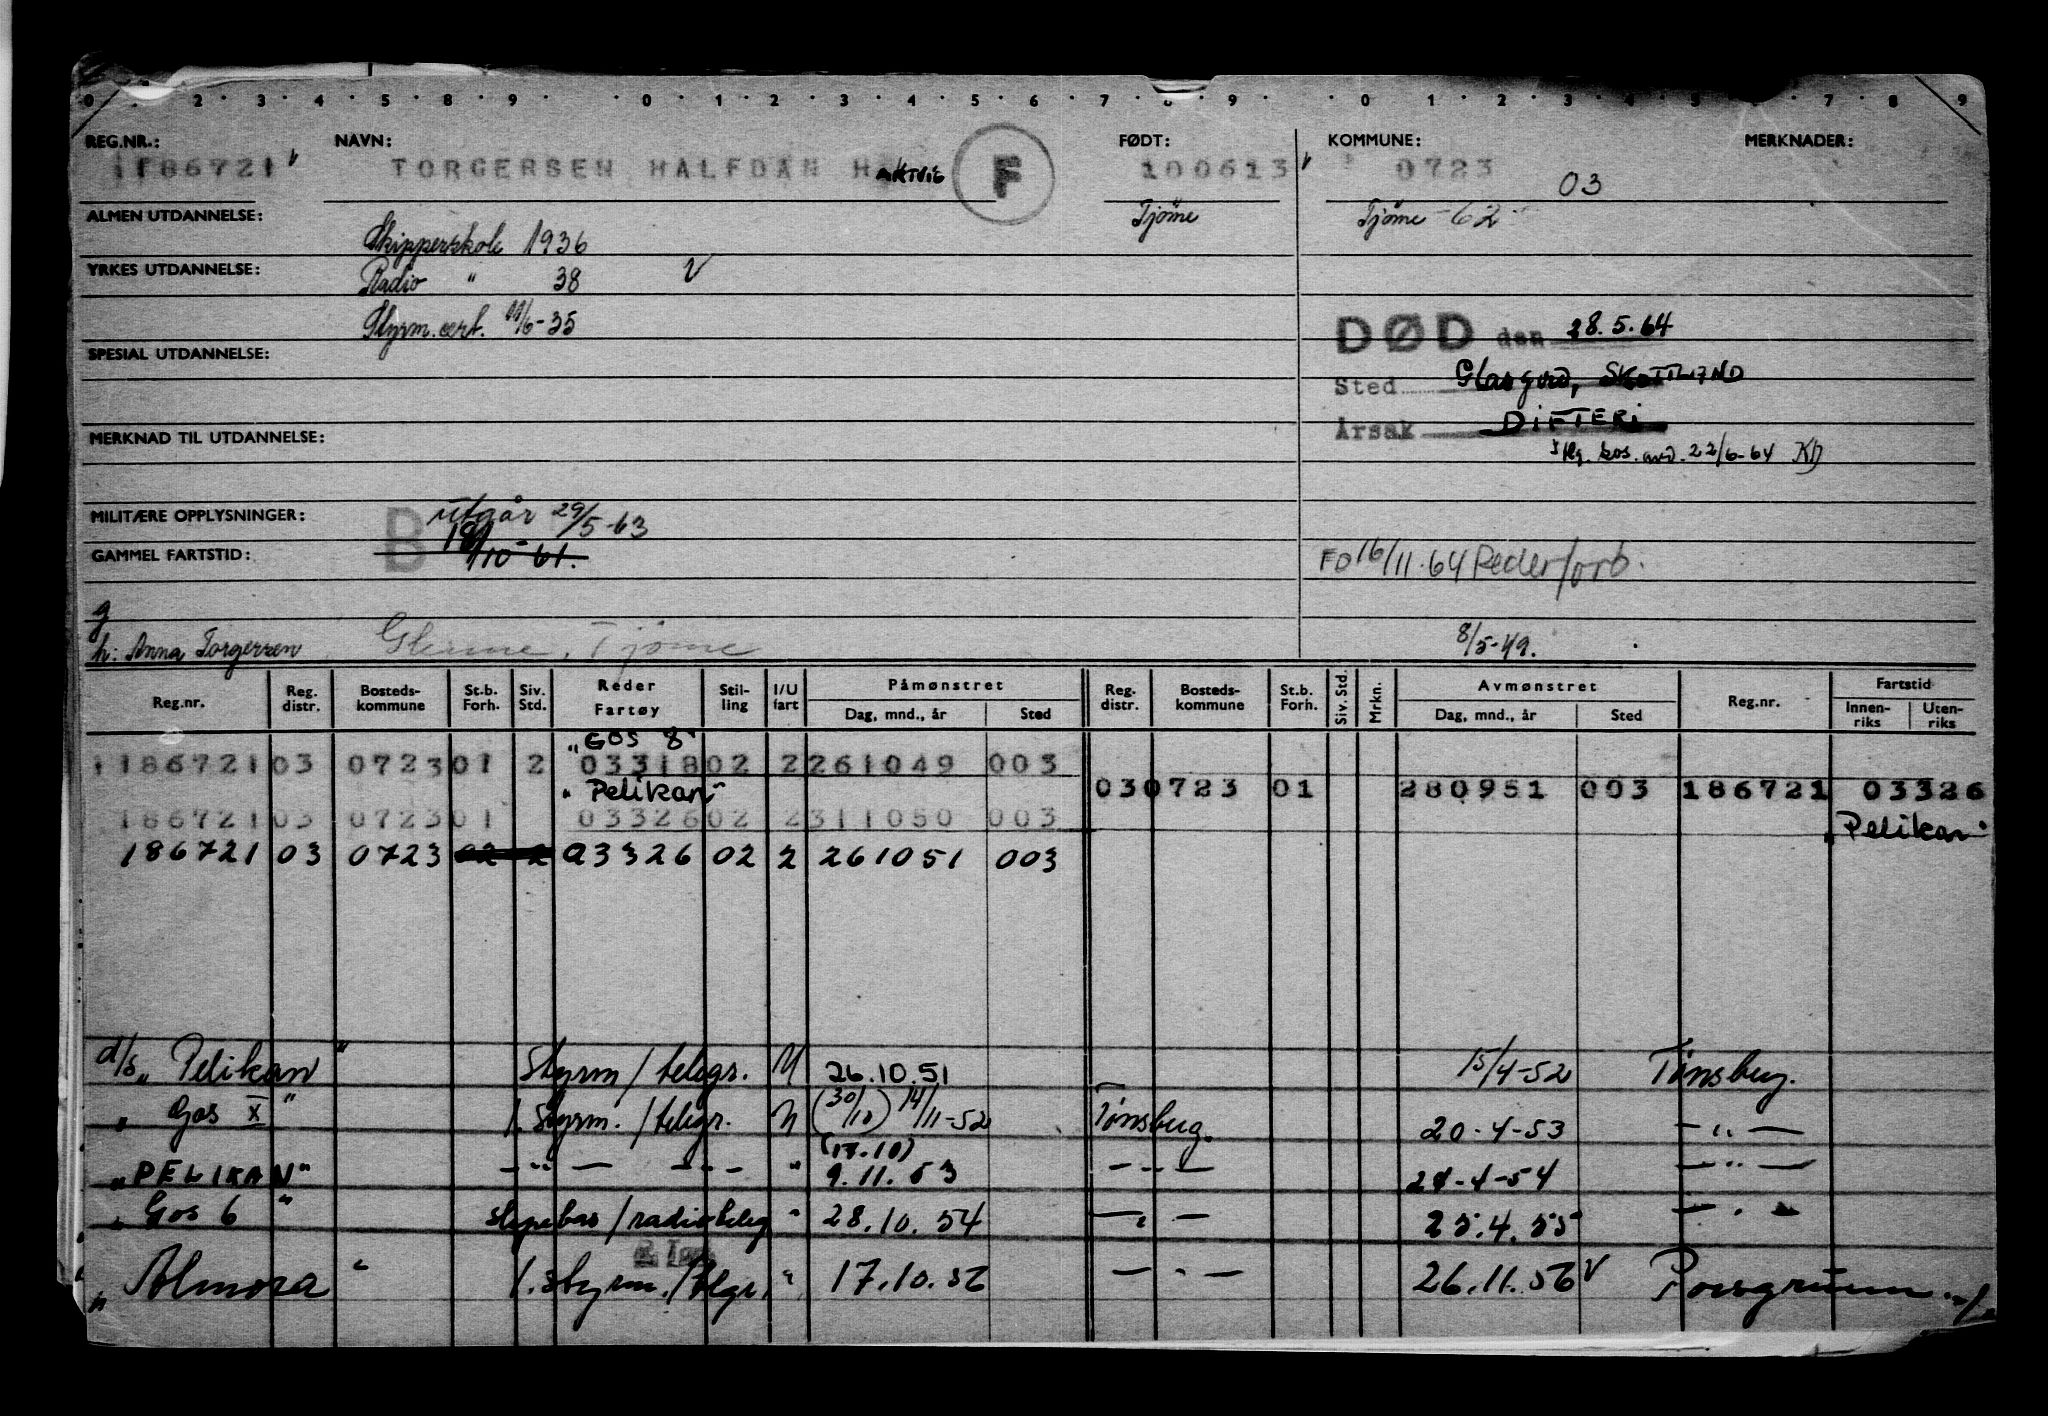 0 . 2 . 3 . 4 . 5 . 8 . 9 . . 0 . 1 . 2 . 3 . 4 . 5 . 6 . 7 . 8 . 9 . . 0 . 1 . 2 . 3 . 4 . 5 . 7 . 8 . 9
REG.NR.: NAVN: FØDT: KOMMUNE: MERKNADER:
186721 TORGERSEN HALFDAN HAKTVIG F 100613 0723 03
ALMEN UTDANNELSE: Tjöme Tjöme -62-
Skipperskole 1936
YRKES UTDANNELSE: Radio " 38 V
Styrm.cert. 11/6-35
DØD den 28.5.64
SPESIAL UTDANNELSE:
Sted Glasgow, SKOTTLAND
Årsak DIFTERI
MERKNAD TIL UTDANNELSE:
22/6-64 KD
MILITÆRE OPPLYSNINGER: B utgår 29/5-63
GAMMEL FARTSTID: 18/10-61.
FD 16/11.64 Rederforb.
g
h: Anna Torgersen Glenne, Tjöme 8/5-49.
Reg.nr. Reg. distr. Bosteds-kommune St.b. Forh. Siv. Std. Reder Fartøy Stil-ling I/U fart Påmønstret Dag, mnd., år Sted Reg. distr. Bosteds-kommune St.b. Forh. Siv. Std. Mrkn. Avmønstret Dag, mnd., år Sted Reg.nr. Fartstid Innen-riks Uten-riks
"GOS 8"
186721 03 0723 01 2 03318 02 2 261049 003
"Pelikan" 03 0723 01 280951 003 186721 03326
186721 03 0723 01 03326 02 2 311050 003 "Pelikan"
186721 03 0723 02 2 03326 02 2 261051 003
d/s "Pelikan" Styrm/telegr. U 26.10.51 15/4-52 Tönsberg.
" Gos X " 1. Styrm./telegr. U (30/10) 14/11-52 Tönsberg. 20-4-53 - " -
(13.10)
"PELIKAN" - " - - " - " 9.11.53 - " - 24-4-54 - " -
" Gos 6 " /radioteleg " 28.10.54 - " - 25.4.55 - " -
" Almora " 1. styrm./tlgr. " 17.10.56 - " - 26.11.56 V Porsgrunn